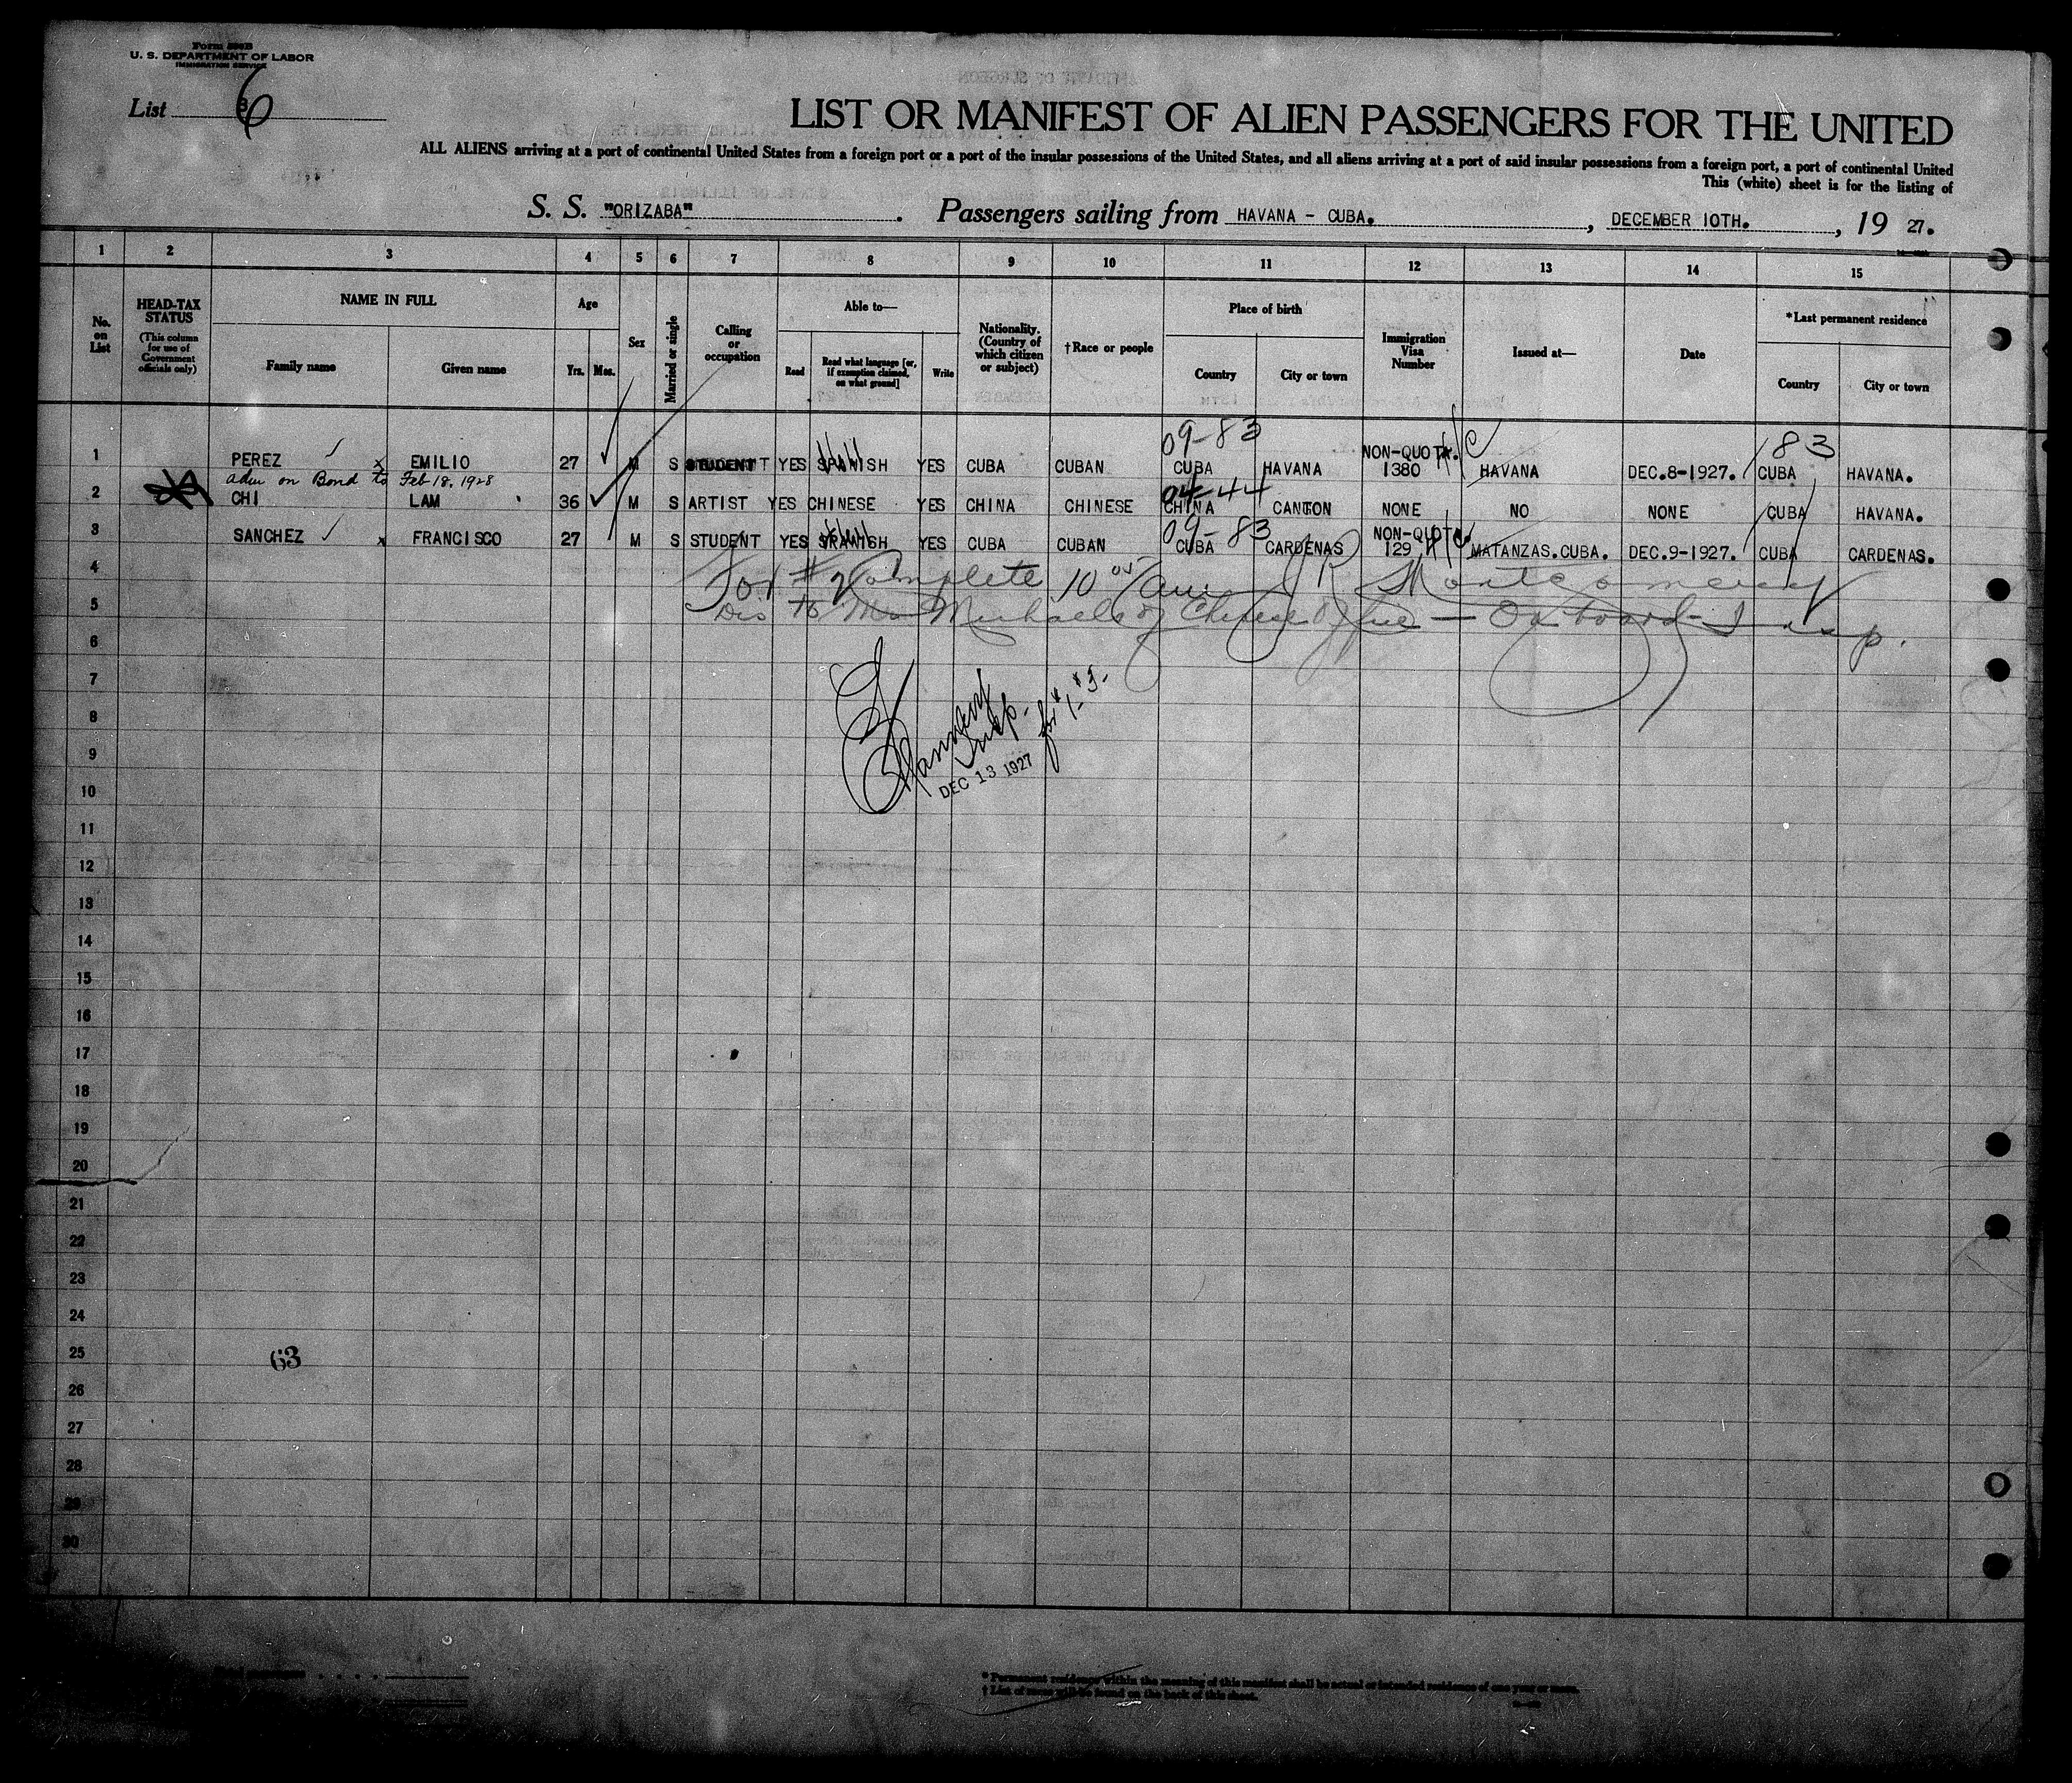 Form 500B
U. S. DEPARTMENT OF LABOR
IMMIGRATION SERVICE
List 6
LIST OR MANIFEST OF ALIEN PASSENGERS FOR THE UNITED
ALL ALIENS arriving at a port of continental United States from a foreign port or a port of the insular possessions of the United States, and all aliens arriving at a port of said insular possessions from a foreign port, a port of continental United
This (white) sheet is for the listing of
S. S. "ORIZABA". Passengers sailing from HAVANA - CUBA., DECEMBER 10TH., 19 27.
1 2 3 4 5 6 7 8 9 10 11 12 13 14 15
No. on List
HEAD-TAX STATUS
(This column for use of Government officials only)
NAME IN FULL
Family name
Given name
Age
Yrs.
Mos.
Sex
Married or single
Calling or occupation
Able to—
Read
Read what language [or, if exemption claimed, on what ground]
Write
Nationality. (Country of which citizen or subject)
†Race or people
Place of birth
Country
City or town
Immigration Visa Number
Issued at—
Date
*Last permanent residence
Country
City or town
09-83
83
1 PEREZ x EMILIO 27 M S STUDENT YES SPANISH YES CUBA CUBAN CUBA HAVANA NON-QUOTA. 1380 HAVANA DEC.8-1927. CUBA HAVANA.
adm on Bond to Feb 18, 1928
04-44
2 CHI LAM 36 M S ARTIST YES CHINESE YES CHINA CHINESE CHINA CANTON NONE NO NONE CUBA HAVANA.
09-83
3 SANCHEZ x FRANCISCO 27 M S STUDENT YES SPANISH YES CUBA CUBAN CUBA CARDENAS NON-QUOTA 129 MATANZAS.CUBA. DEC.9-1927. CUBA CARDENAS.
4 For #2 Complete 10 05 am J R Montgomery
5 Dis to Mr Michaels of Chinese Office — On board - Insp.
6
7
8
Insp. for #1-#3-
9
DEC 13 1927
10
11
12
13
14
15
16
17
18
19
20
21
22
23
24
25
63
26
27
28
29
30
* Permanent residence within the meaning of this manifest shall be actual or intended residence of one year or more.
† List of races will be found on the back of this sheet.